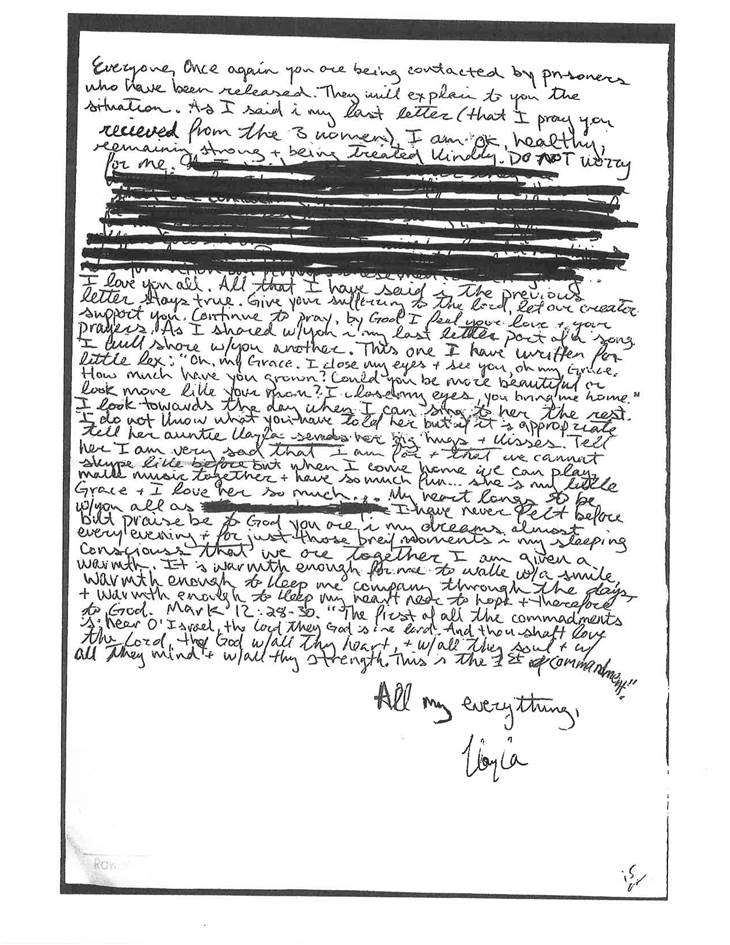 Everyone, Once again you are being contacted by prisoners
who have been released. They will explain to you the
situation. As I said i my last letter (that I pray you
recieved from the 3 women) I am ok, healthy,
remaining strong + being treated kindly. DO NOT worry
for me.
I love you all. All that I have said i the previous
letter stays true. Give your suffering to the lord, let our creator
support you. Continue to pray, by God I feel your love + your
prayers. As I shared w/you i my last letter part of a song
I will share w/you another. This one I have written for
little lex: "Oh, my Grace. I close my eyes + see you, oh my Grace.
How much have you grown? Could you be more beautiful or
look more like your mom? I close my eyes, you bring me home."
I look towards the day when I can sing to her the rest.
I do not know what you have told her but if it is appropriate
tell her auntie Kayla sends her big hugs + kisses. Tell
her I am very sad that I am far + that we cannot
skype like before but when I come home we can play,
make music together + have so much fun... she is my little
Grace + I love her so much... My heart longs to be
w/you all as I have never felt before
but praise be to God you are i my dreams almost
every evening + for just those breif moments i my sleeping
consciouss that we are together I am given a
warmth. It's warmth enough for me to walk w/a smile,
warmth enough to keep me company through the days,
+ warmth enough to keep my heart near to hope + therefore
to God. Mark 12:28-30. "The first of all the commadments
is, hear O'Israel, the lord they God is one lord. And thou shalt love
the Lord, thy God w/all thy heart, + w/all they soul + w/
all they mind + w/all thy strength. This is the 1st commandment."
All my everything,
Kayla